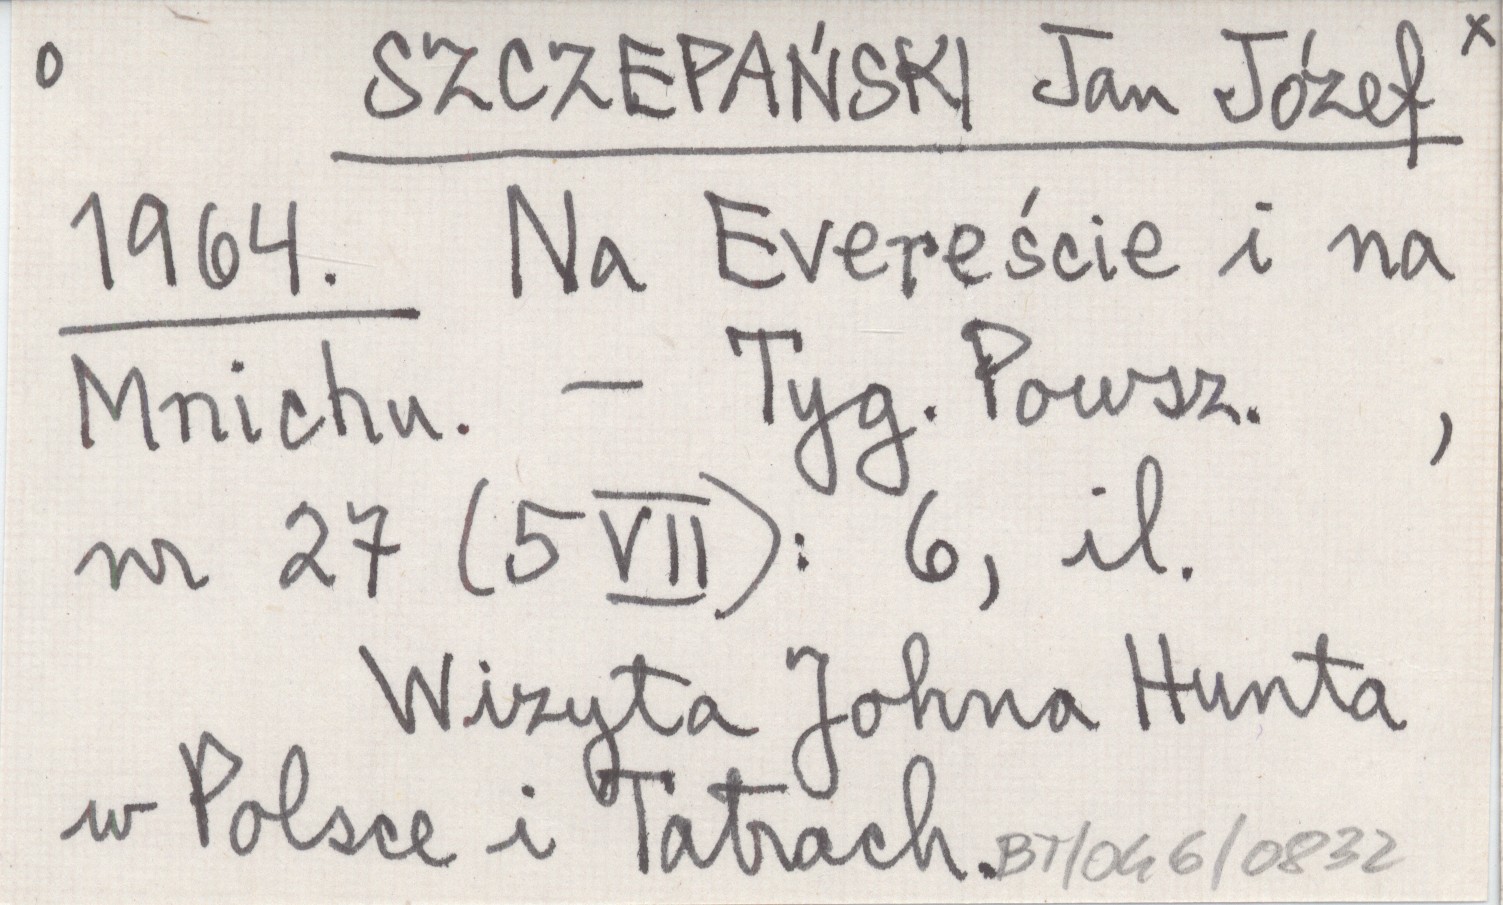 o SZCZEPAŃSKI Jan Józef x
1964. Na Evereście i na
Mnichu. – Tyg. Powsz. ,
nr 27 (5 VII): 6, il.
Wizyta Johna Hunta
w Polsce i Tatrach. BT/046/0832